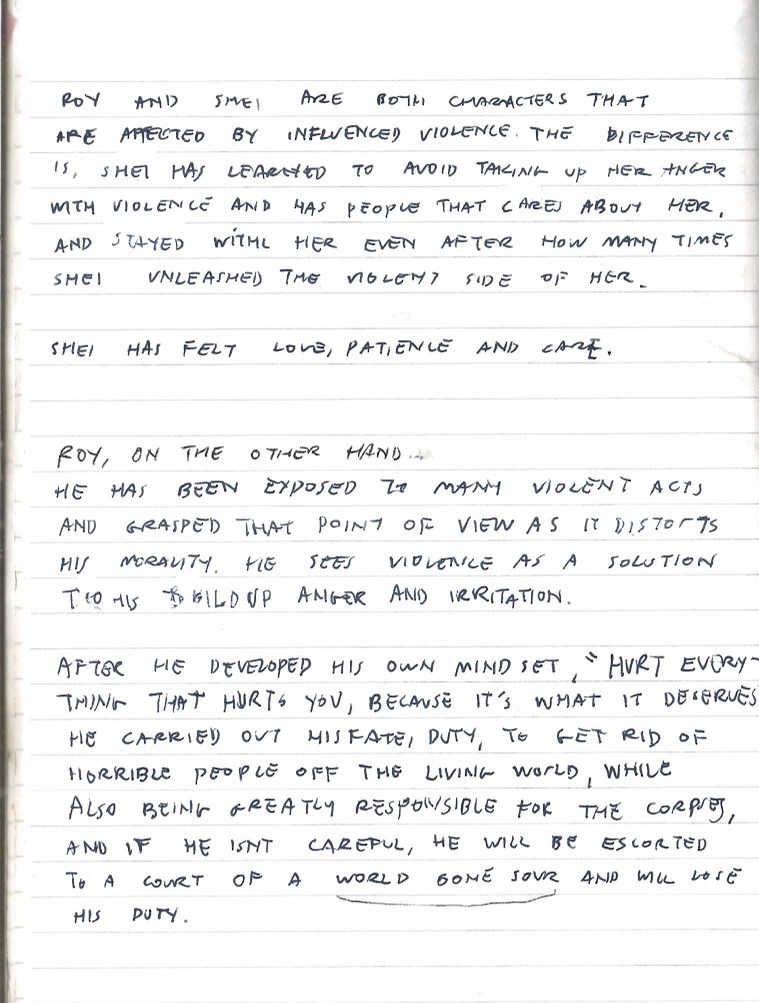 ROY AND SHEI ARE BOTH CHARACTERS THAT
ARE AFFECTED BY INFLUENCED VIOLENCE. THE DIFFERENCE
IS, SHEI HAS LEARNED TO AVOID TAKING UP HER ANGER
WITH VIOLENCE AND HAS PEOPLE THAT CARES ABOUT HER,
AND STAYED WITH HER EVEN AFTER HOW MANY TIMES
SHEI UNLEASHED THE VIOLENT SIDE OF HER.
SHEI HAS FELT LOVE, PATIENCE AND CARE.
ROY, ON THE OTHER HAND...
HE HAS BEEN EXPOSED TO MANY VIOLENT ACTS
AND GRASPED THAT POINT OF VIEW AS IT DISTORTS
HIS MORALITY. HE SEES VIOLENCE AS A SOLUTION
TO HIS BUILD UP ANGER AND IRRITATION.
AFTER HE DEVELOPED HIS OWN MINDSET, "HURT EVERY-
THING THAT HURTS YOU, BECAUSE IT'S WHAT IT DESERVES
HE CARRIED OUT HIS FATE, DUTY, TO GET RID OF
HORRIBLE PEOPLE OFF THE LIVING WORLD, WHILE
ALSO BEING GREATLY RESPONSIBLE FOR THE CORPSES,
AND IF HE ISNT CAREFUL, HE WILL BE ESCORTED
TO A COURT OF A WORLD GONE SOUR AND WILL LOSE
HIS DUTY.